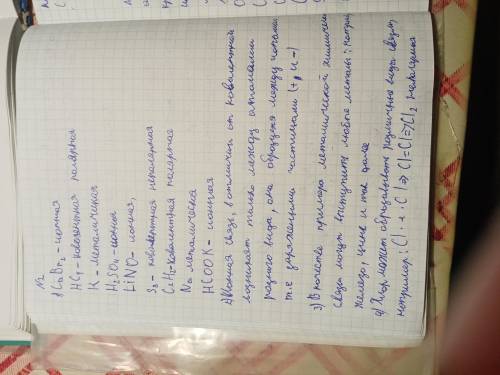 №1
1) CaBr₂ - ионная
HCl - ковалентная полярная
K - металическая
H₂SO₄ - ионная
LiNO₃ - ионная,
S₈ - ковалентная неполярная
C₂H₂ - ковалентная полярное
Na металическая
HCOOK - ионная
2) Ионная связь, в отличии от ковалентной
возникает только между атомами
разного вида, она образуется между ионами
т.е заряженными частицами (+ и -)
3) В качестве примера металической химической
связи могут выступить любые металлы: натрий,
железо, цинк и так далее
4) Хлор может образовывать различные виды связи,
например: Cl· + ·Cl => Cl-Cl => Cl₂ неполярная